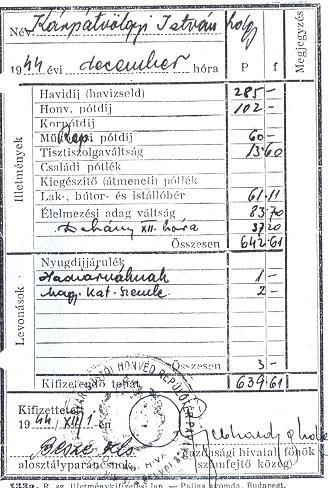 Né Kárpátvölgyi István hdgy
1944 évi december hóra P f Megjegyzés
Illetmények
Havidíj (havizsold) 285 -
Honv. pótdíj 102 -
Korpótdíj
Rep. pótdíj 60 -
Tisztiszolgaváltság 13 60
Családi pótlék
Kiegészítő (átmeneti) pótlék
Lak-, bútor- és istállóbér 61 11
Élelmezési adag váltság 83 70
Dohány XII. hóra 37 20
Összesen 642 61
Levonások
Nyugdíjjárulék
Hadiárváknak 1 -
Magy. Kat. Szemle 2 -
Összesen 3 -
Kifizetendő tehát 639 61
Kifizettetett
1944 XII/1 én
alosztályparancsnok
gazdasági hivatali főnök
(számfejtő közeg)